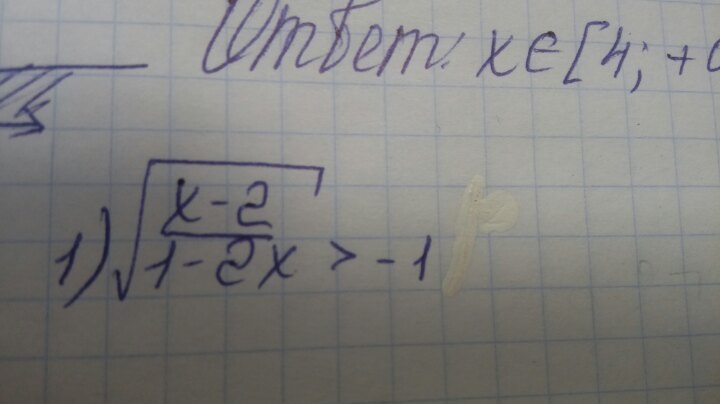 Ответ: x∈[4; +
1) √((x-2)/(1-2x)) > -1